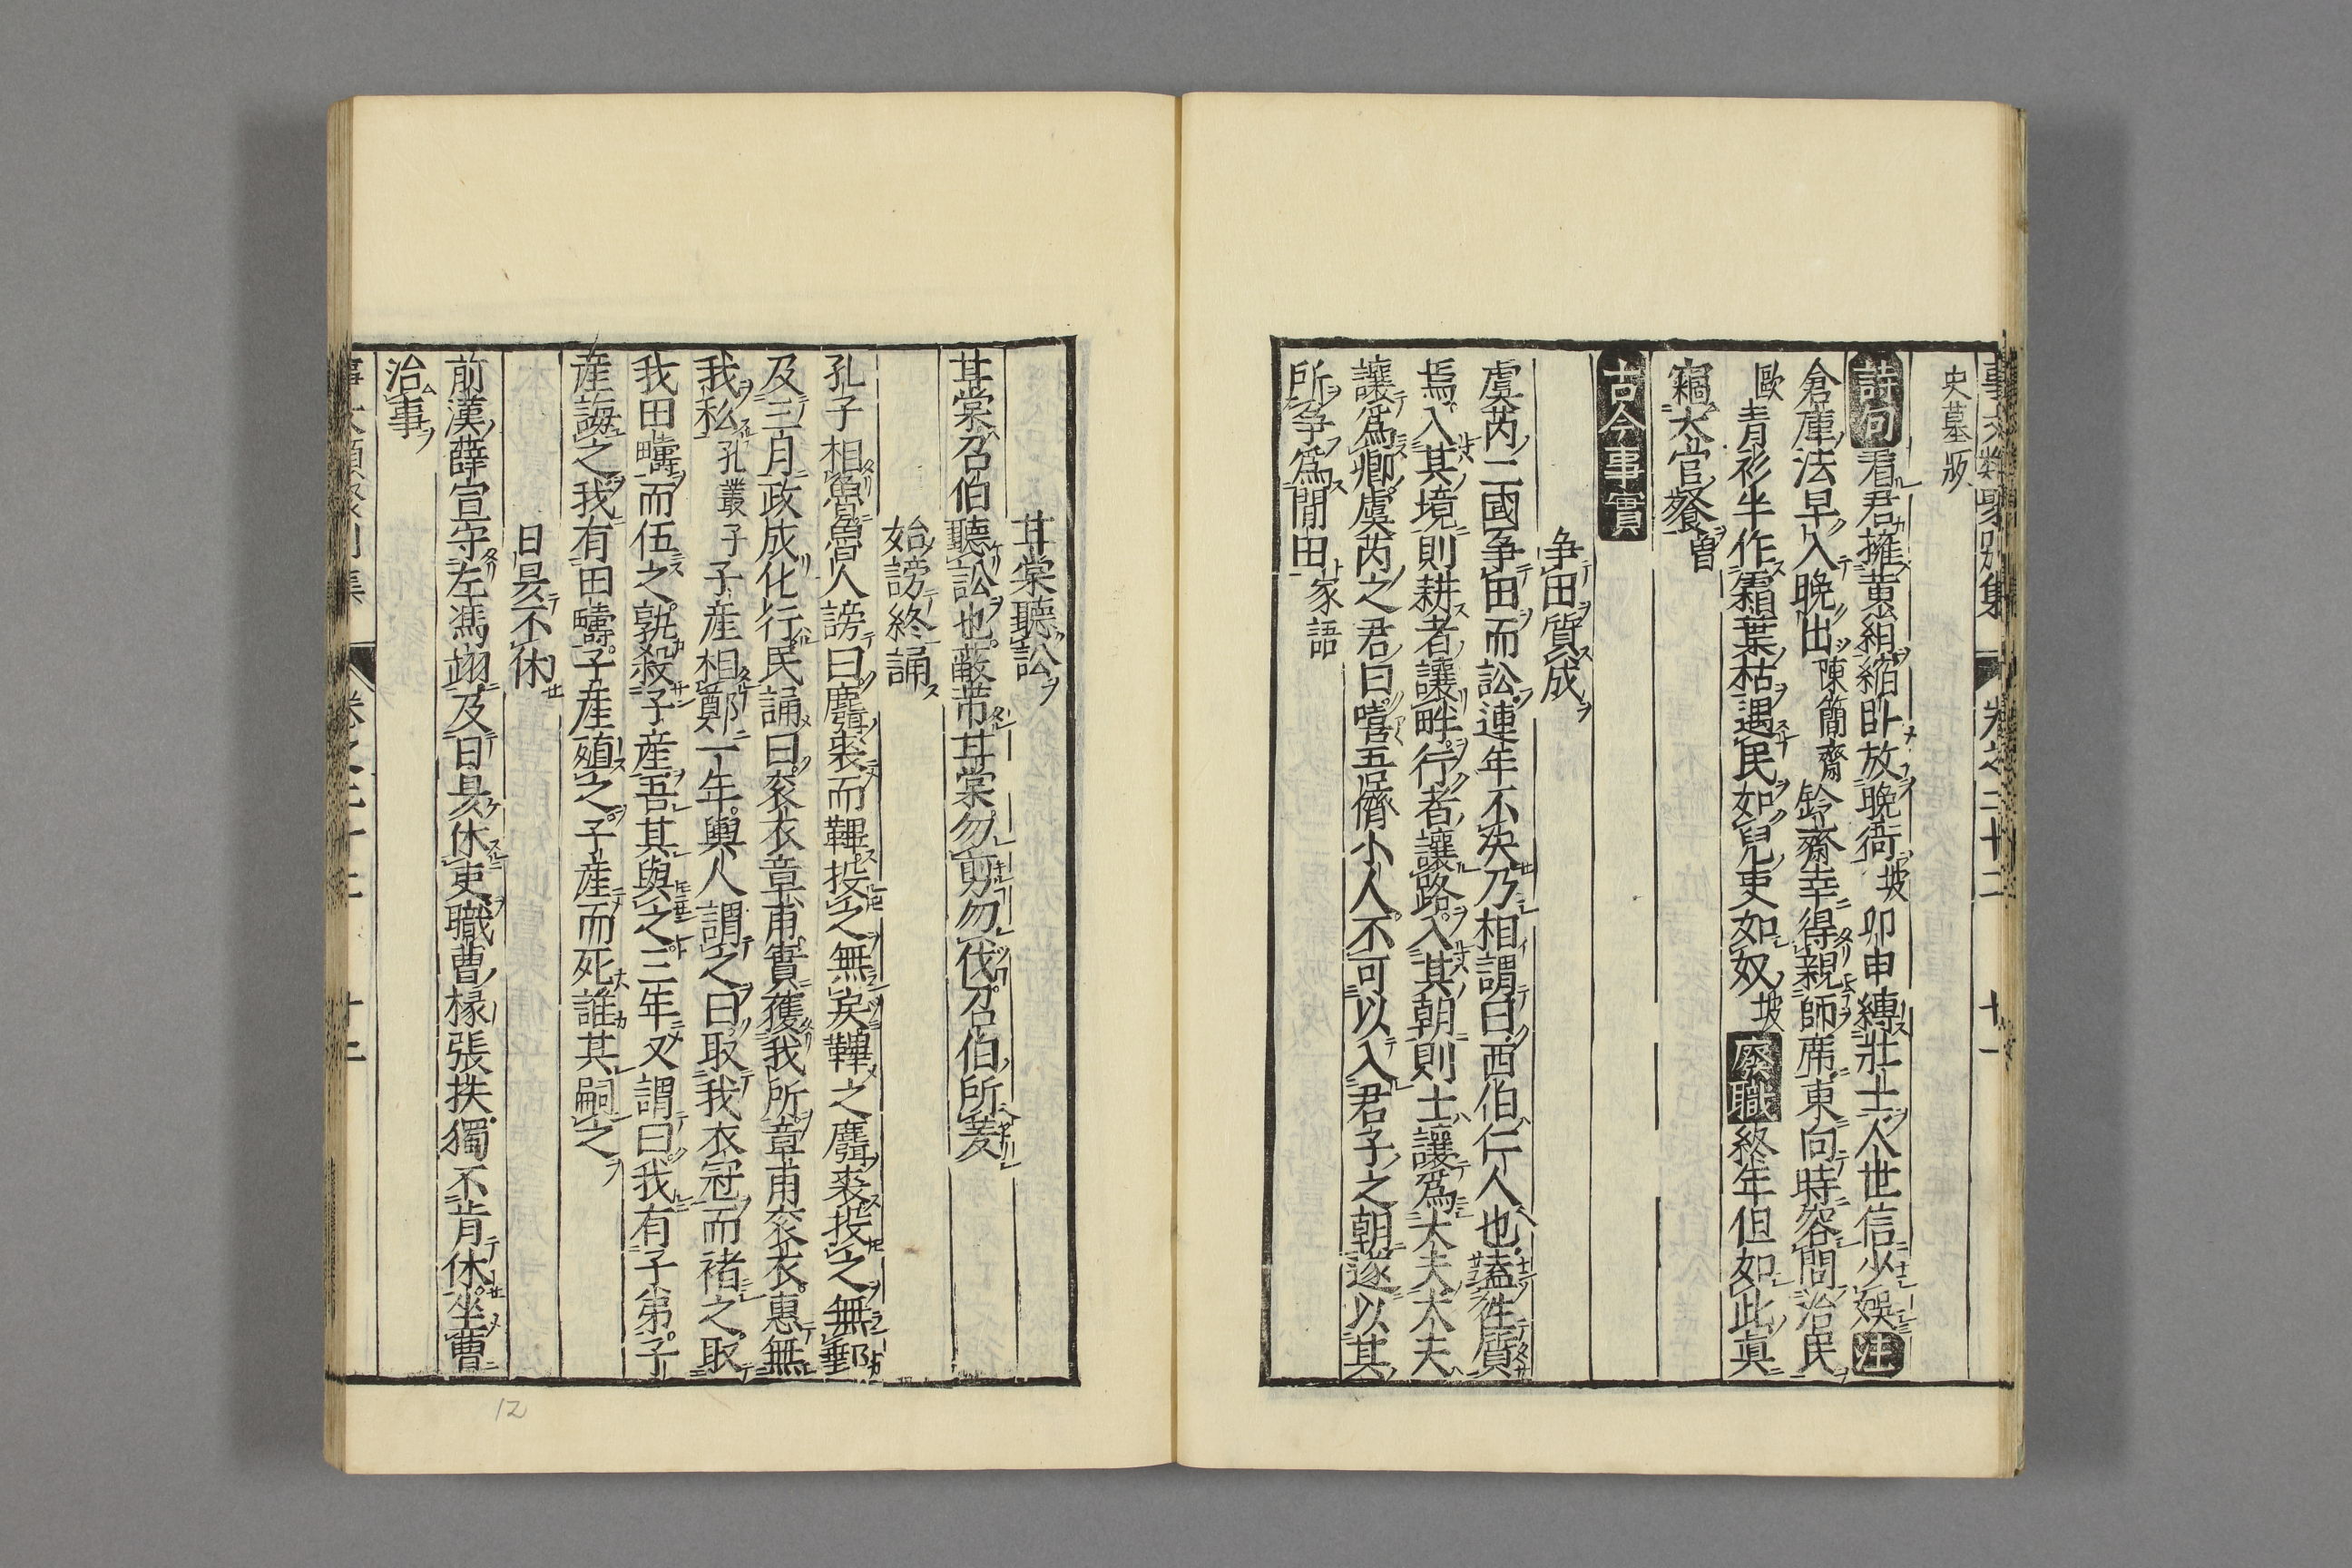 事文類聚別集 卷之二十二 十一
史墓版
詩句看君擁黃紬縮卧放晩衙坡卯申縛壯士人世信少娯注
倉庫法早入晩出陳簡齋鈴齋幸得親師席東向時容問治民
歐青衫半作霜葉枯遇民如兒吏如奴坡廢職終年但如此真
竊大官餐曽
古今事實
争田質成
虞芮二國争田而訟連年不決乃相謂曰西伯仁人也盍徃質
焉入其境則耕者讓畔行者讓路入其朝則士讓爲大夫大夫
讓爲卿虞芮之君曰嘻吾儕小人不可以入君子之朝遂以其
所爭爲閒田家語
甘棠聽訟
甘棠召伯聽訟也蔽芾甘棠勿剪勿伐召伯所茇
始謗終誦
孔子相魯魯人謗曰麛裘而鞸投之無戾鞸之麛裘投之無郵
及三月政成化行民誦曰衮衣章甫實獲我所章甫衮衣惠無
我私孔叢子子産相鄭一年輿人謂之曰取我衣冠而褚之取
我田疇而伍之孰殺子産吾其與之三年又謂曰我有子弟子
産誨之我有田疇子産殖之子産而死誰其嗣之
日昃不休
前漢薛宣守左馮翊及日昃休吏職曹掾張扶獨不肯休坐曹
治事
事文類聚別集 卷之二十二 十二
12